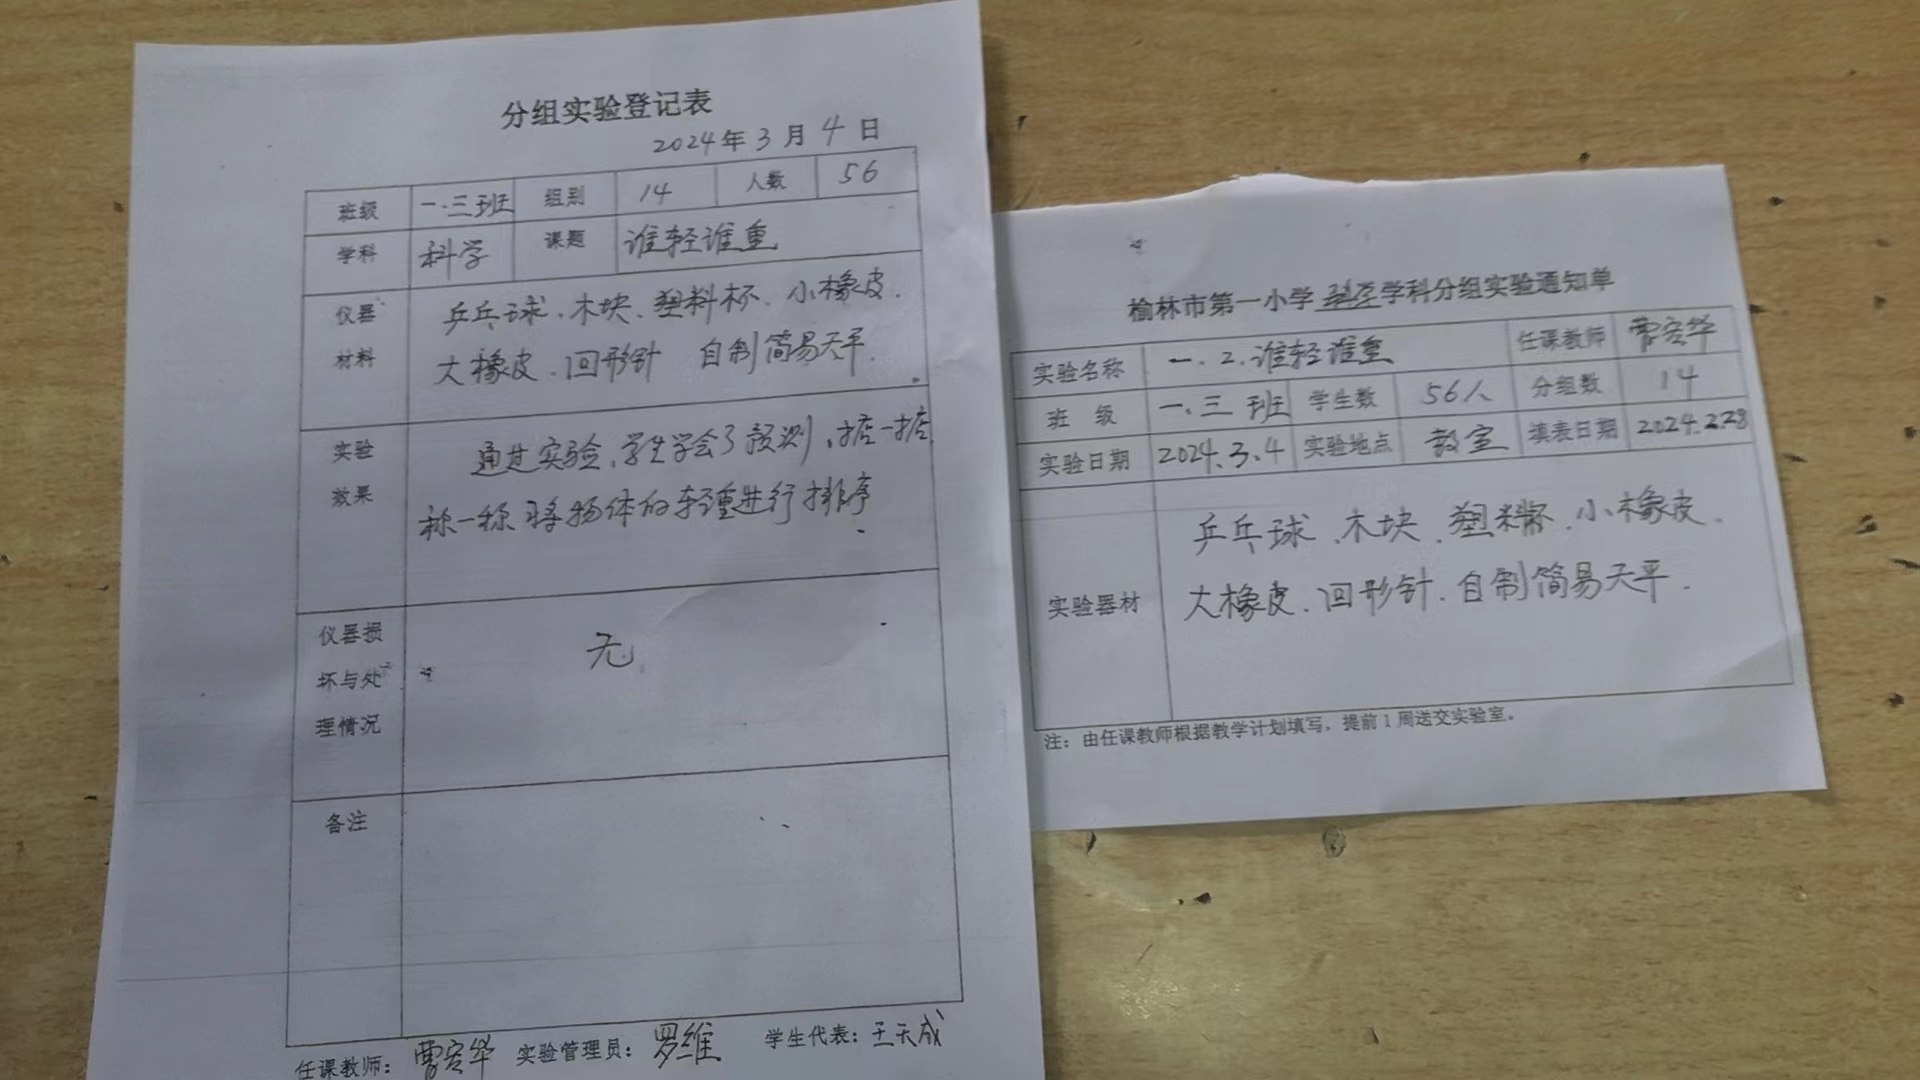 分组实验登记表
2024年3月4日
班级 一.三班 组别 14 人数 56
学科 科学 课题 谁轻谁重
仪器材料 乒乓球、木块、塑料杯、小橡皮.
大橡皮、回形针 自制简易天平.
实验效果 通过实验,学生学会了预测,掂一掂
称一称将物体的轻重进行排序.
仪器损坏与处理情况 无.
备注
任课教师: 曹 华 实验管理员: 罗维 学生代表: 王天成
榆林市第一小学 科学 学科分组实验通知单
实验名称 一.2.谁轻谁重 任课教师 曹 华
班级 一.三班 学生数 56人 分组数 14
实验日期 2024.3.4 实验地点 教室 填表日期 2024.2.28
实验器材 乒乓球、木块、塑料杯、小橡皮.
大橡皮、回形针.自制简易天平.
注:由任课教师根据教学计划填写,提前1周送交实验室。